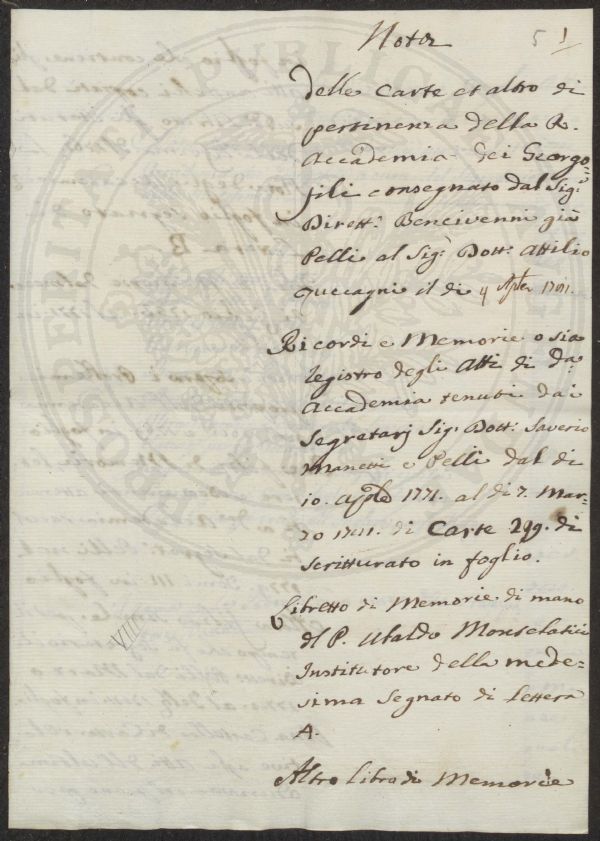 Nota
5 1
delle Carte et altro di
pertinenza della R.
Accademia dei Georgo=
fili consegnato dal Sig:
Dirett: Bencivenni già
Pelli al Sig: Dott: Attilio
Zuccagni il dì 4
Ricordi e Memorie o sia
registro degli Atti di da
Accademia tenuti dai
Segretarj Sig: Dott: Saverio
Manetti e Pelli dal dì
10. 1771. al dì 7. Mar=
zo di Carte 299. di
scritturato in foglio.
Libretto di Memorie di mano
del P. Ubaldo Montelatici
Institutore della mede=
sima Segnato di Lettera
A.
Altro libro di Memorie
VIII
PROSPERITATI PUBLICAE